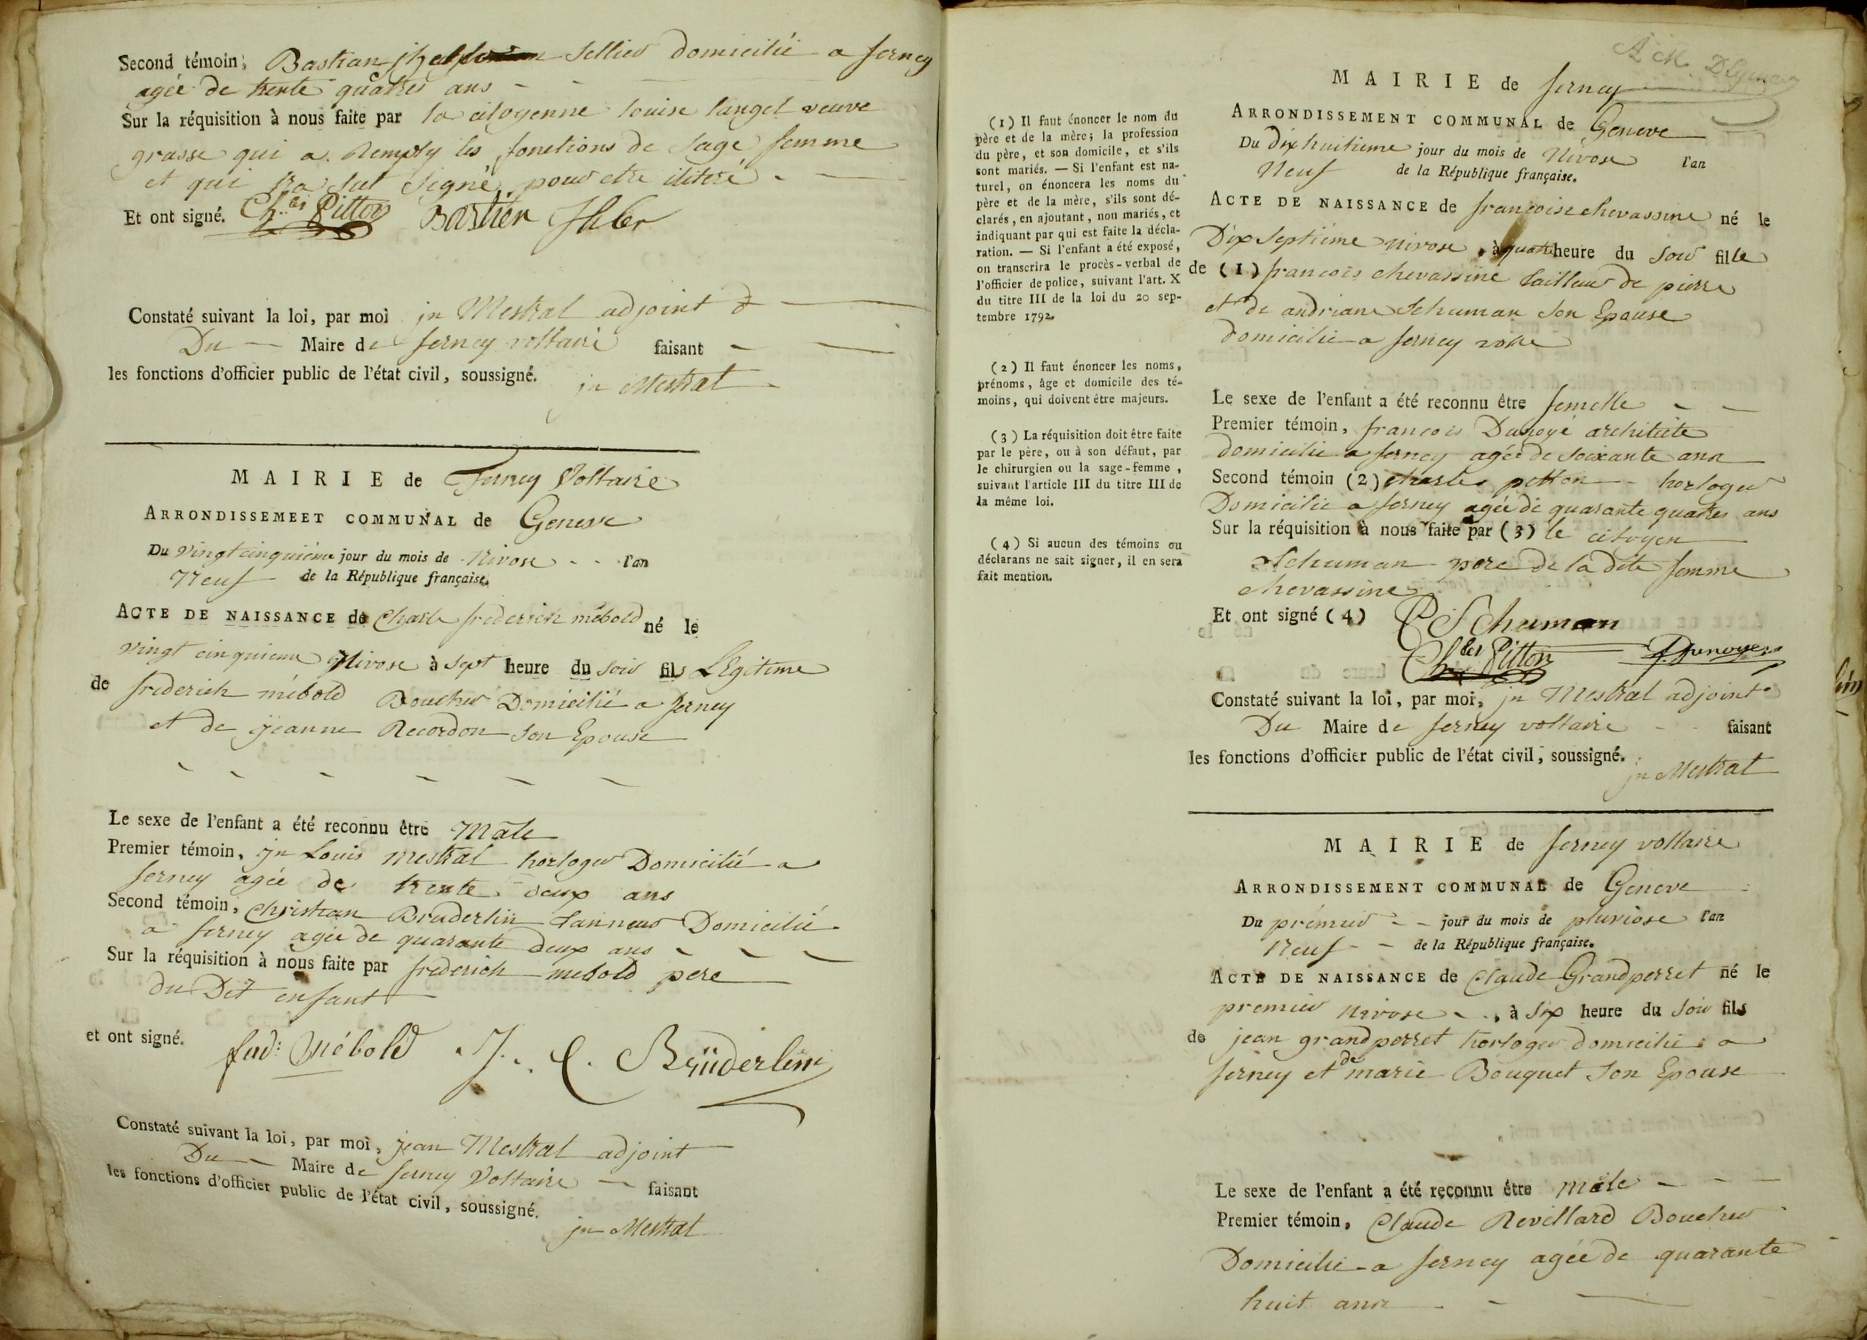 Second témoin, Bastian sellier domicilié a ferney
agée de trente quatres ans
Sur la réquisition à nous faite par la citoyenne louise languet veuve
grasse qui a Remply les fonctions de Sage femme
et qui na sut Signé pour etre ilitéré
Et ont signé. Ch.les Pitton Bastien
Constaté suivant la loi, par moi jn Mestral adjoint
Du Maire de ferney voltaire faisant
les fonctions d'officier public de l'état civil, soussigné.
jn Mestral
MAIRIE de Ferney Voltaire
ARRONDISSEMEET COMMUNAL de Geneve
Du vingt cinquiéme jour du mois de Nivose l'an
Neuf de la République française.
ACTE DE NAISSANCE de Charle frederich mébold né le
vingt cinquieme Nivose à sept heure du soir fils LEgitime
de frederich mébold Boucher Domicilié a ferney
et de jeanne Recordon son Epouse
Le sexe de l'enfant a été reconnu être Mâle
Premier témoin, jn Louis mestral horloger Domicilié a
ferney agée de trente deux ans
Second témoin, Christian Bruderlin tanneur Domicilié
a ferney agée de quarante deux ans
Sur la réquisition à nous faite par frederich mebold père
du Dit enfant
et ont signé. frid: Mébold J. C. Brüderlin
Constaté suivant la loi, par moi, jean Mestral adjoint
Du Maire de ferney Voltaire faisant
les fonctions d'officier public de l'état civil, soussigné.
jn Mestral
(1) Il faut énoncer le nom du
père et de la mère; la profession
du père, et son domicile, et s'ils
sont mariés. — Si l'enfant est na-
turel, on énoncera les noms du
père et de la mère, s'ils sont dé-
clarés, en ajoutant, non mariés, et
indiquant par qui est faite la décla-
ration. — Si l'enfant a été exposé,
on transcrira le procès-verbal de
l'officier de police, suivant l'art. X
du titre III de la loi du 20 sep-
tembre 1792.
(2) Il faut énoncer les noms,
prénoms, âge et domicile des té-
moins, qui doivent être majeurs.
(3) La réquisition doit être faite
par le père, ou à son défaut, par
le chirurgien ou la sage-femme,
suivant l'article III du titre III de
la même loi.
(4) Si aucun des témoins ou
déclarans ne sait signer, il en sera
fait mention.
MAIRIE de ferney
ARRONDISSEMENT COMMUNAL de Geneve
Du dix huitieme jour du mois de Nivose l'an
Neuf de la République française.
ACTE DE NAISSANCE de francoise chevassine né le
Dix Septiéme nivose, à quatre heure du soir fille
de (1) francois chevassine tailleur de pierre
et de andriane Schuman Son Epouse
domicilié a ferney
Le sexe de l'enfant a été reconnu être femelle
Premier témoin, francois Dunoyé architecte
domicilié a ferney agée de soixante ans
Second témoin (2) charles pitton horloger
Domicilié a ferney agée de quarante quatres ans
Sur la réquisition à nous faite par (3) le citoyen
Schuman pere de la dite femme
chevassine
Et ont signé (4) Schuman
Ch.les Pitton Dunoyer
Constaté suivant la loi, par moi, jn Mestral adjoint
Du Maire de ferney voltaire faisant
les fonctions d'officier public de l'état civil, soussigné.
jn Mestral
MAIRIE de ferney voltaire
ARRONDISSEMENT COMMUNAL de Geneve
Du prémier jour du mois de pluviose l'an
Neuf de la République française.
ACTE DE NAISSANCE de Claude Grandperret né le
premier nivose, à six heure du soir fils
de jean grandperret horloger domicilié a
ferney et de marie Bouquet Son Epouse
Le sexe de l'enfant a été reconnu être mâle
Premier témoin, Claude Revillard Boucher
Domicilié a ferney agée de quarante
huit ans